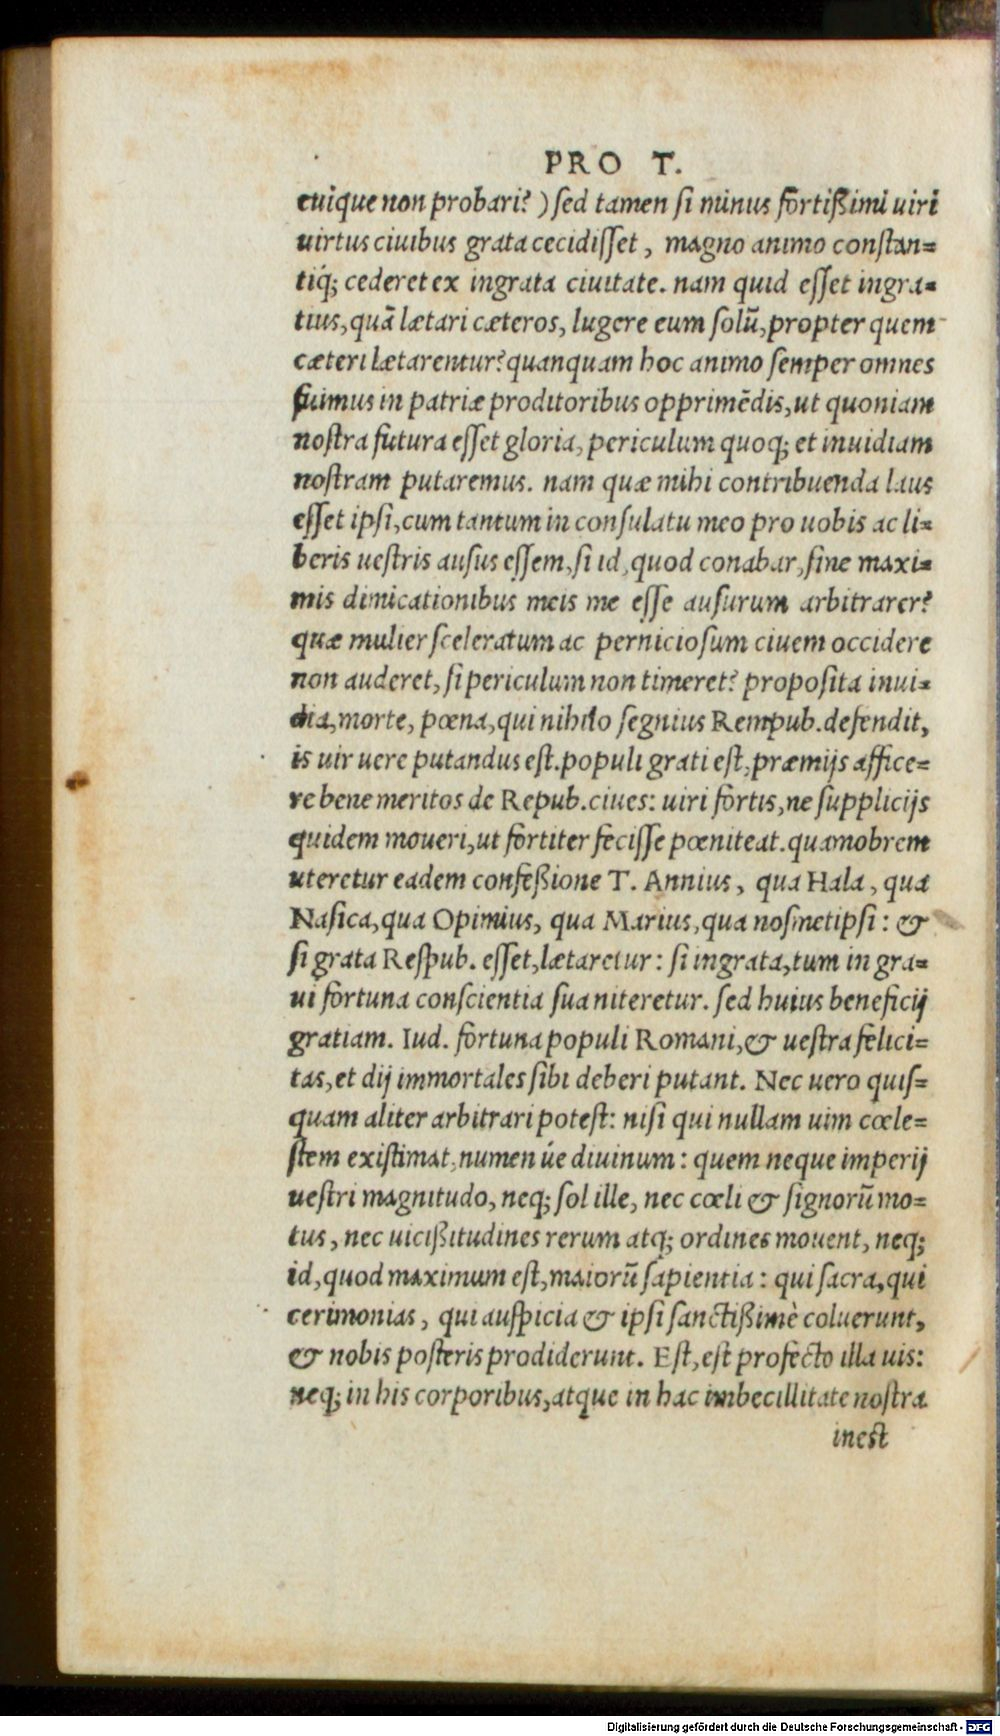 PRO T.
cuique non probari? ) sed tamen si minus fortißimi uiri
uirtus ciuibus grata cecidisset, magno animo constan=
tiq́; cederet ex ingrata ciuitate. nam quid esset ingra=
tius, quã lætari cæteros, lugere eum solũ, propter quem
cæteri lætarentur? quanquam hoc animo semper omnes
fuimus in patriæ proditoribus opprimẽdis, ut quoniam
nostra futura esset gloria, periculum quoq; et inuidiam
nostram putaremus. nam quæ mihi contribuenda laus
esset ipsi, cum tantum in consulatu meo pro uobis ac li=
beris uestris ausus essem, si id, quod conabar, sine maxi=
mis dimicationibus meis me esse ausurum arbitrarer?
quæ mulier sceleratum ac perniciosum ciuem occidere
non auderet, si periculum non timeret? proposita inui=
dia, morte, pœna, qui nihilo segnius Rempub. defendit,
is uir uere putandus est. populi grati est, præmijs affice=
re bene meritos de Repub. ciues: uiri fortis, ne supplicijs
quidem moueri, ut fortiter fecisse pœniteat. quamobrem
uteretur eadem confeßione T. Annius, qua Hala, qua
Nasica, qua Opimius, qua Marius, qua nosmetipsi: &
si grata Respub. esset, lætaretur: si ingrata, tum in gra=
ui fortuna conscientia sua niteretur. sed huius beneficij
gratiam. Iud. fortuna populi Romani, & uestra felici=
tas, et dij immortales sibi deberi putant. Nec uero quis=
quam aliter arbitrari potest: nisi qui nullam uim cœle=
stem existimat, numen úe diuinum: quem neque imperij
uestri magnitudo, neq; sol ille, nec cœli & signorũ mo=
tus, nec uicißitudines rerum atq; ordines mouent, neq;
id, quod maximum est, maiorũ sapientia: qui sacra, qui
cerimonias, qui auspicia & ipsi sanctißimè coluerunt,
& nobis posteris prodiderunt. Est, est profecto illa uis:
neq; in his corporibus, atque in hac imbecillitate nostra
inest
Digitalisierung gefördert durch die Deutsche Forschungsgemeinschaft - DFG